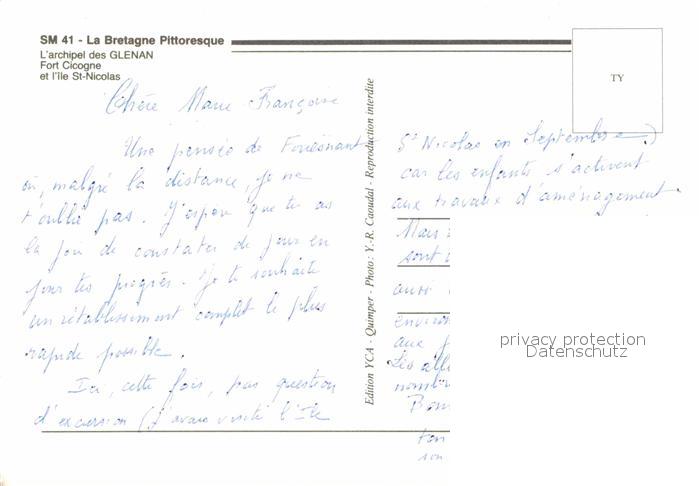 SM 41 - La Bretagne Pittoresque
L'archipel des GLENAN
Fort Cicogne
et l'île St-Nicolas
TY
Chère Marie-Françoise
Une pensée de Fouesnant
où, malgré la distance, je ne
t'oublie pas. J'espère que tu as
la joie de constater de jour en
jour tes progrès. Je te souhaite
un rétablissement complet le plus
rapide possible.
Ici, cette fois, pas question
d'excursion (j'avais visité l'Ile
Edition YCA - Quimper - Photo : Y.-R. Caoudal - Reproduction interdite
St Nicolas en Septembre)
car les enfants s'activent
aux travaux d'aménagement
Mais
sont
aussi
environ
aux
Les
nomb
Bon
ton
son
privacy protection
Datenschutz